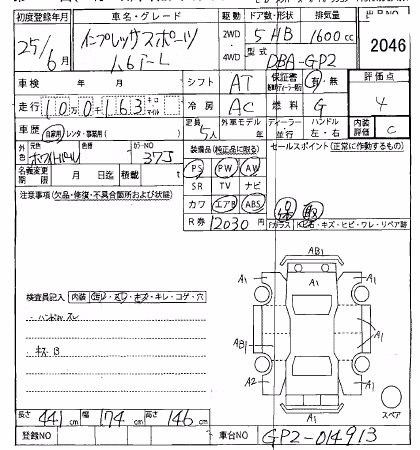 初度登録年月 車名・グレード 駆動 ドア数・形状 排気量
25年 6月 インプレッサスポーツ 1.6i-L 2WD 4WD 5HB 1600cc
型式 DBA-GP2
2046
車検 年 月 シフト AT 保証書 有・無 評価点 4
走行 100,163 キロ マイル 冷房 AC 燃料 G
車歴 自家用 レンタ・事業用( ) 定員 5人 外車モデル 年 ディーラー 並行 ハンドル 左・右 内装評価 C
外色 元色 ホワイトパール 色替 カラーNO 37J
装備品(純正品に限る) セールスポイント(正常に作動するもの)
名義変更期限 月 日迄 積載量 t
PS PW AW
SR TV ナビ
カワ エアB ABS
R券 12030円
注意事項(欠品・修復・不具合箇所および状態)
記 取
Fガラス 飛石・キズ・ヒビ・ワレ・リペア跡
検査員記入 内装 キレ・コゲ・穴
・ハンドルスレ
・キズ B
AB1
A1 A1 A1
AB1 A1
A2 A1
スペア
長さ 441cm 幅 174cm 高さ 146cm
登録NO 車台NO GP2-014913